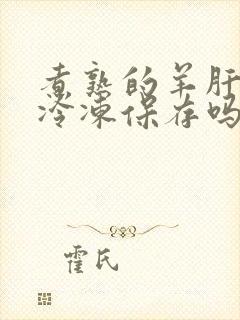 煮熟的羊肝
冷冻保存吗
霍氏